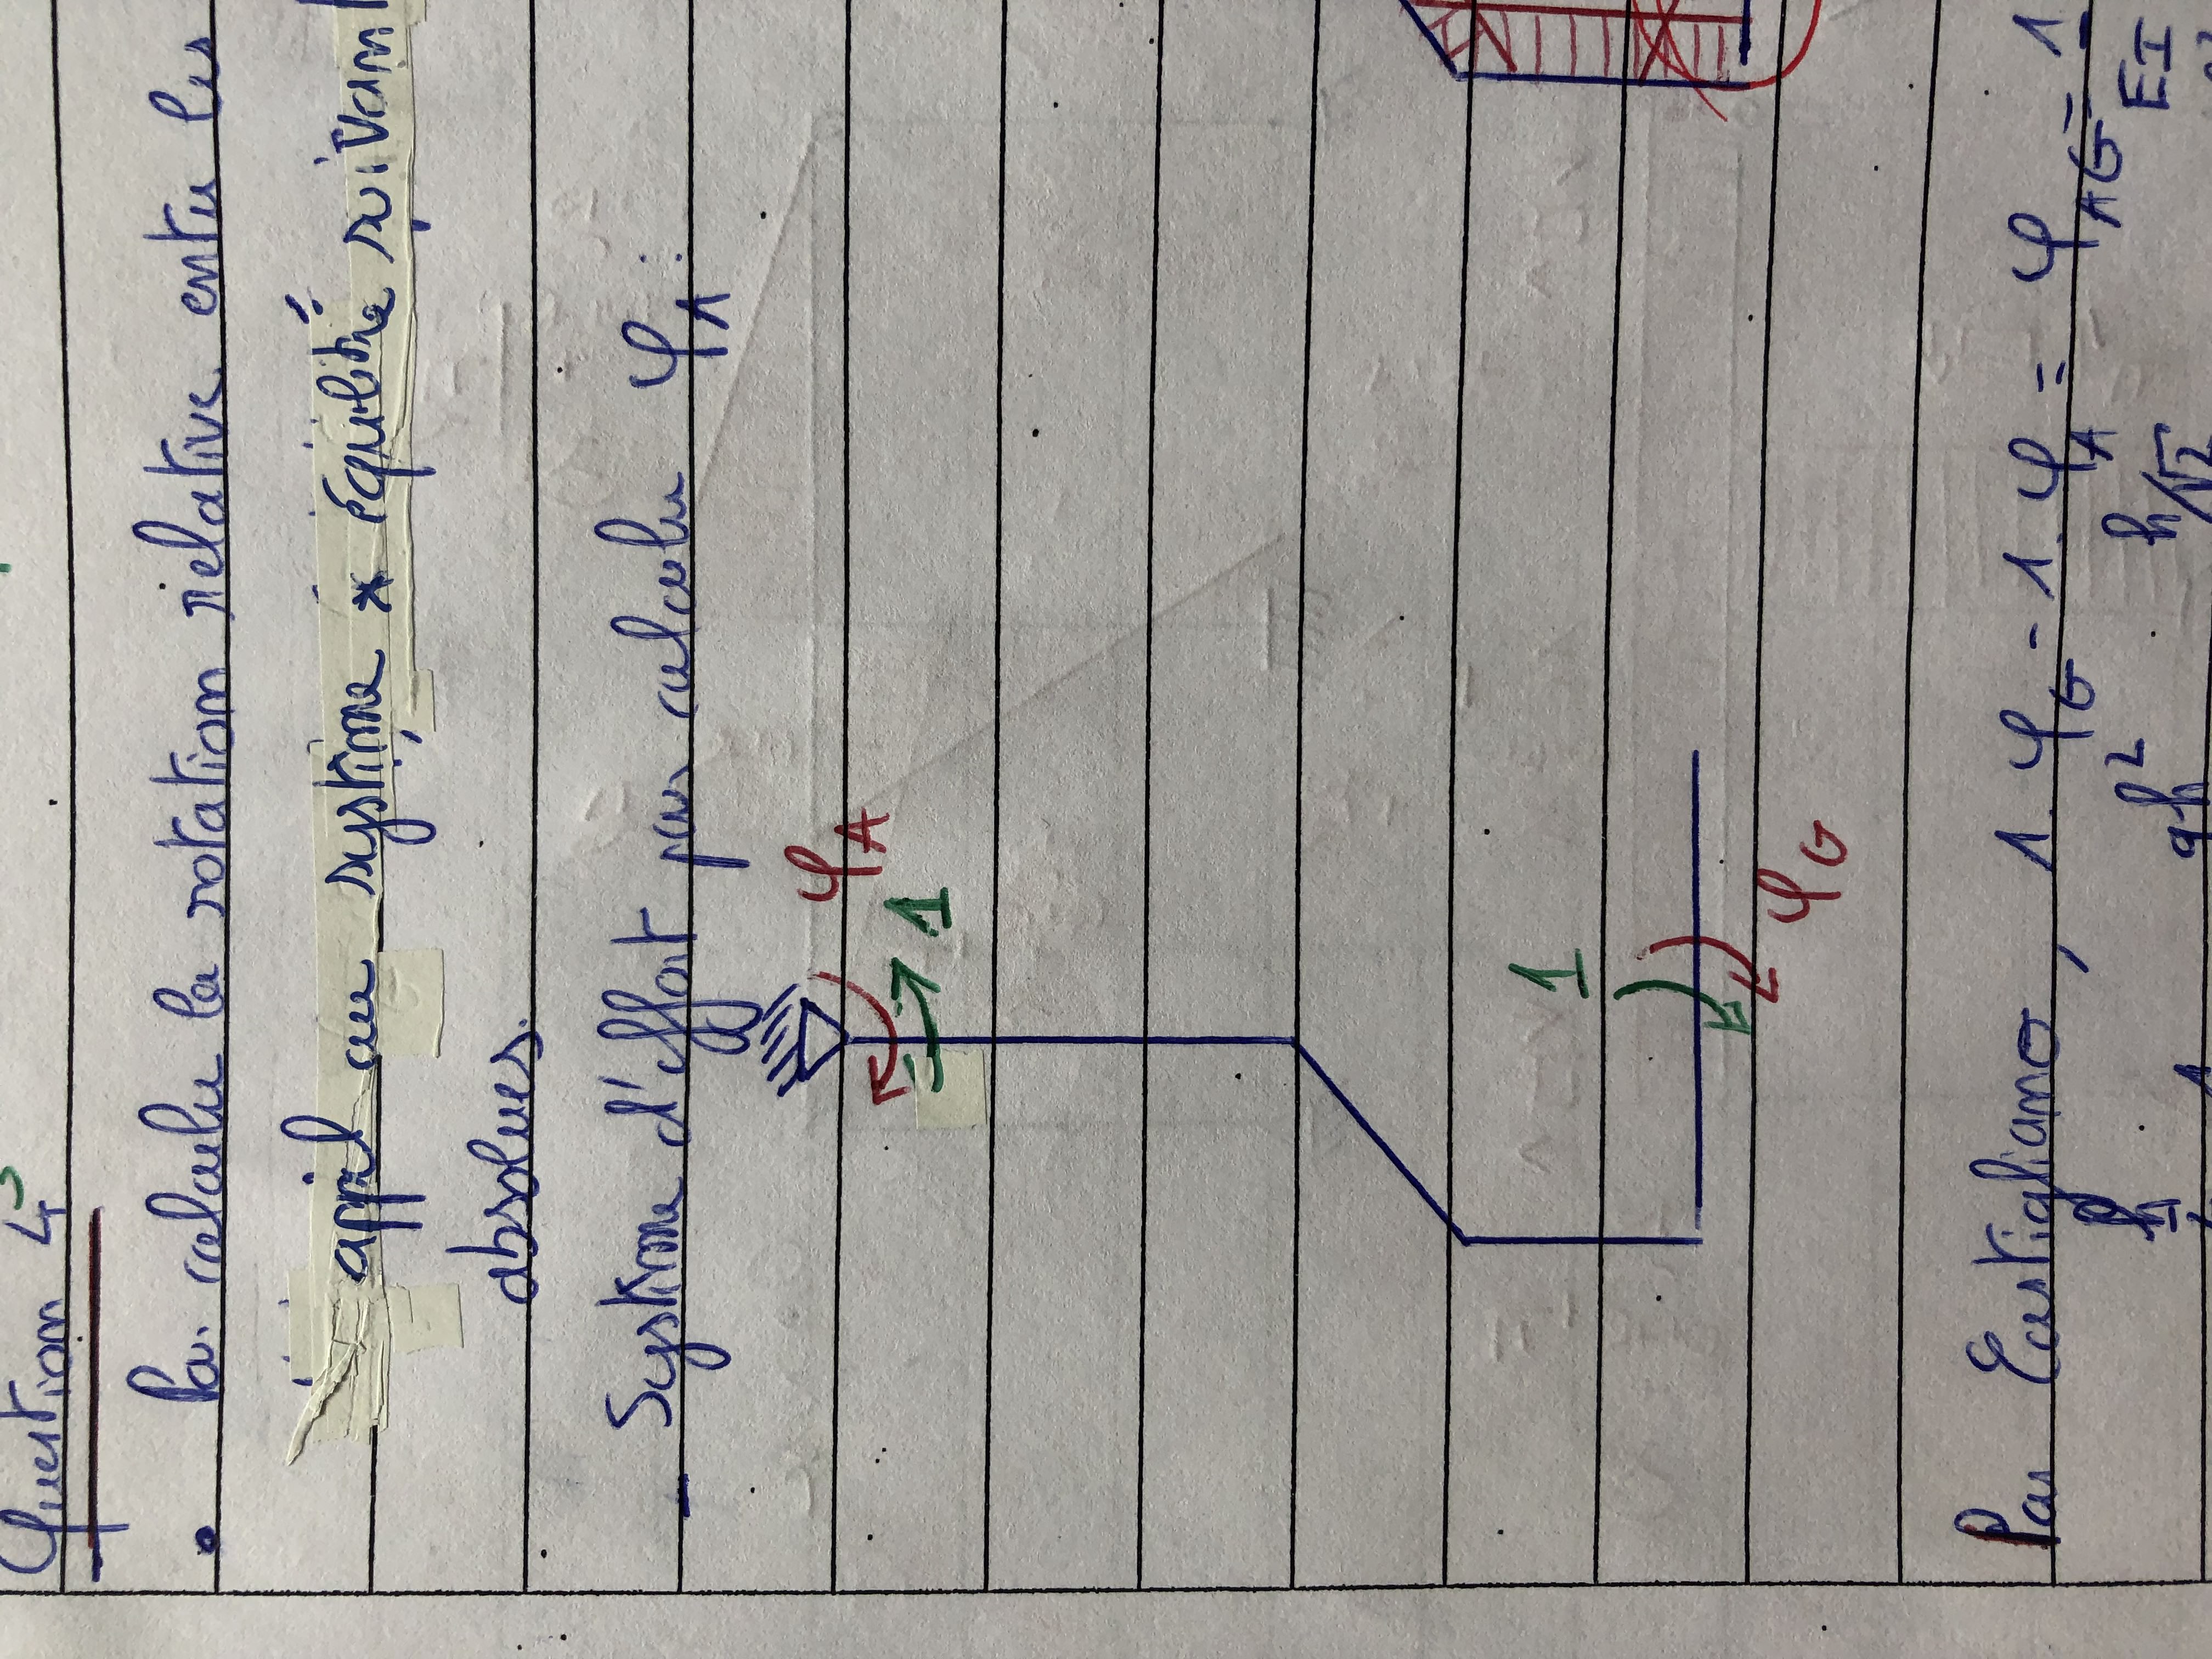 Question 4
• Pour calculer la rotation relative entre les
appel au système * équilibré suivant
absolues.
- Système d'effort pour calculer φA :
φA
1
1
φG
Par Castigliano, 1.φG - 1.φA = φAG = 1
EI
h
qh²
h/√2